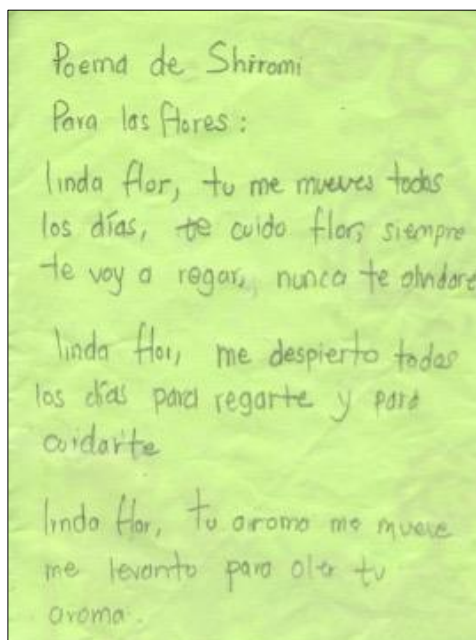 Poema de Shiromi
Para las flores:
linda flor, tu me mueves todos
los días, te cuido flor, siempre
te voy a regar, nunca te olvidare
linda flor, me despierto todos
los días para regarte y para
cuidarte
linda flor, tu aroma me mueve
me levanto para oler tu
aroma.